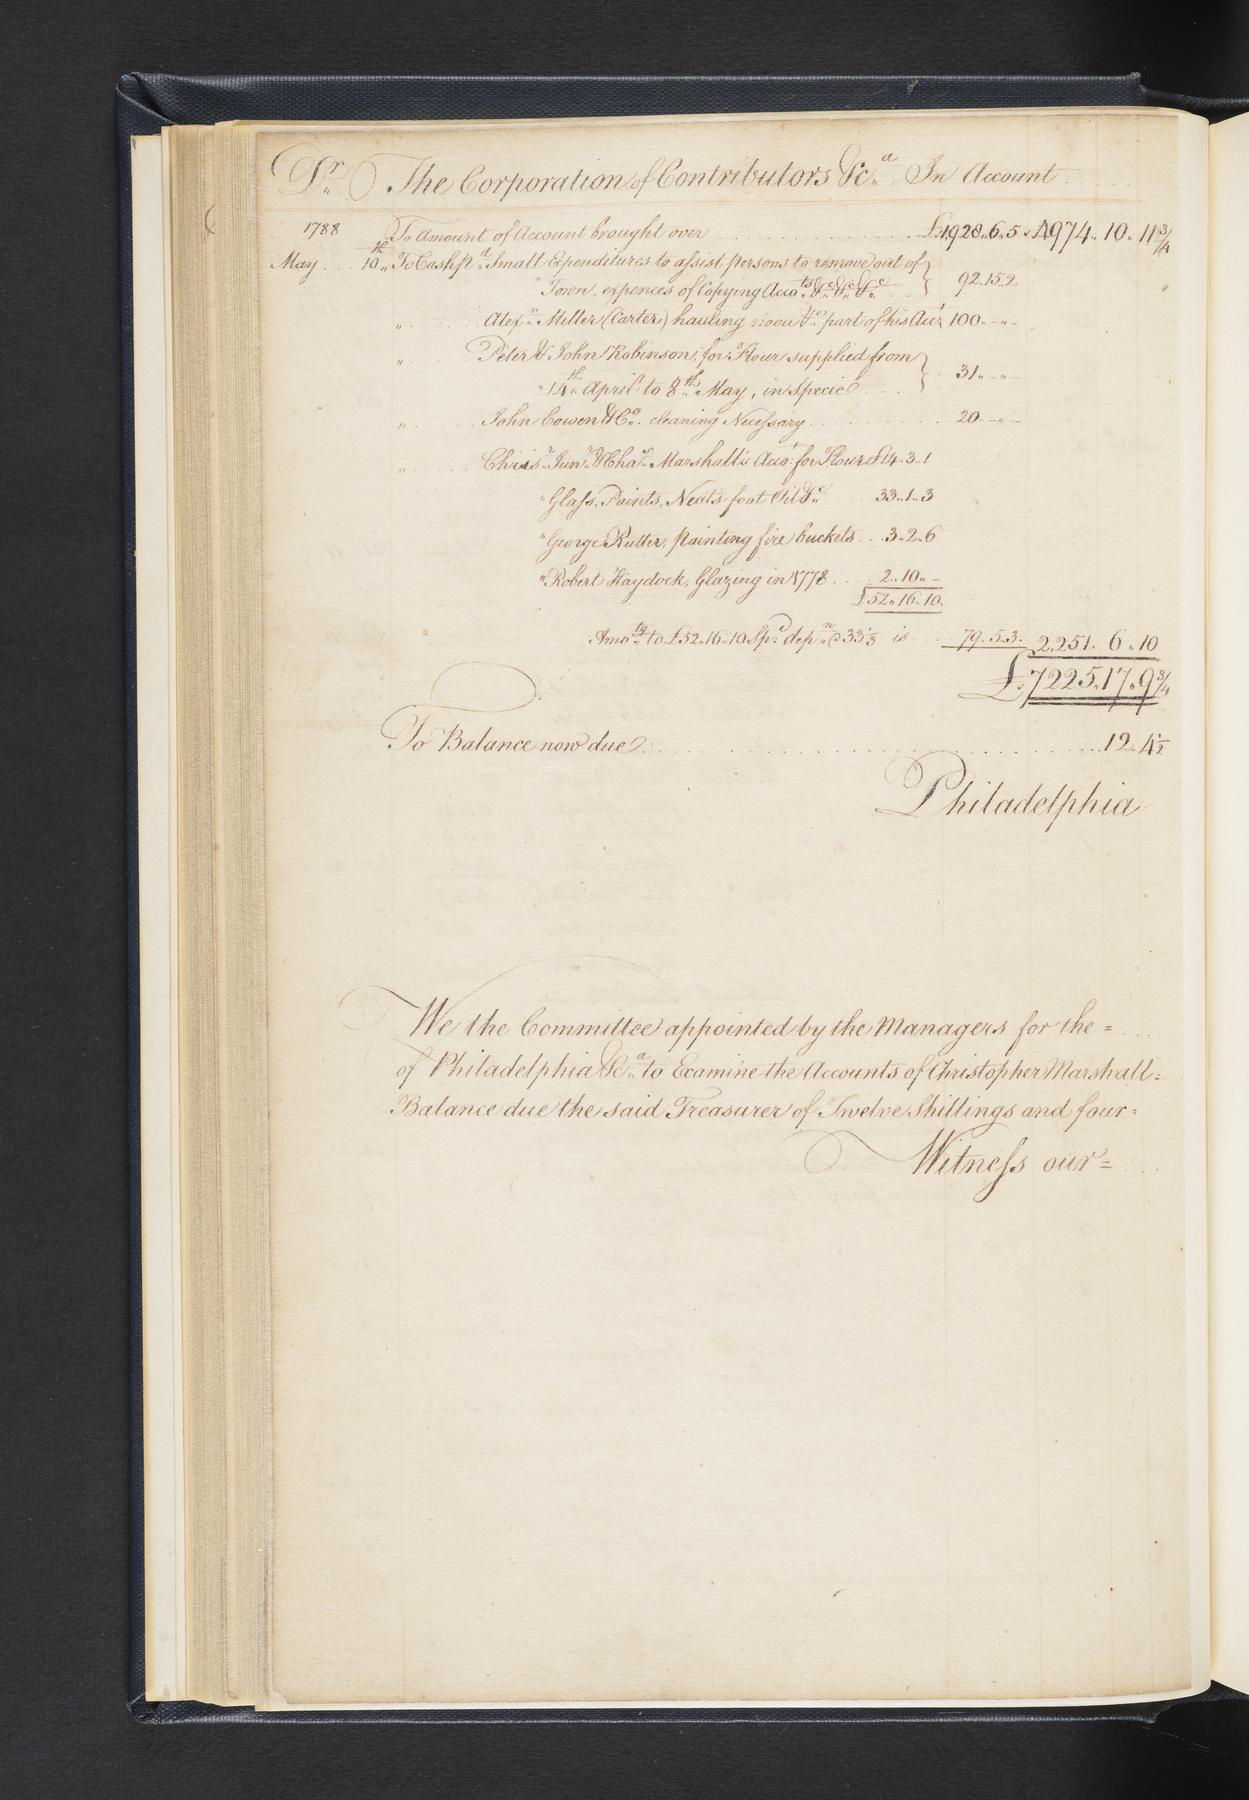 Dr. The Corporation of Contributors &ca. In Account
1788 To Amount of Account brought over £1928..6..5 4974..10..11 3/4
May 10th.. To Cash pd. Small Expenditures to assist persons to remove out of
Town, expences of Copying Accots. &c. &c. &c. 92.15.2
" Alexr. Miller (Carter) hauling wood &c. part of his Acct. 100..-..-
" Peter & John Robinson, for Flour supplied from
" 14th. April to 8th. May, in Specie 31..-..-
" John Cowen & Co. cleaning Necessary 20..-..-
" Chrisr. Junr. & Chas. Marshall's Acco: for Flour £14..3..1
" Glass, Paints, Neats-foot Oil &c. 33..1..3
" George Rutter, painting fire buckets 3..2..6
" Robert Haydock, Glazing in 1778 2..10..-
£52..16..10.
Amotg. to £52..16..10 Spe. depn. @ 33 1/3 is 79..5..3. 2,251..6..10
£7225..17..9 3/4
To Balance now due 12..4 1/2
Philadelphia
We the Committee appointed by the Managers for the =
of Philadelphia &ca. to Examine the Accounts of Christopher Marshall =
Balance due the said Treasurer of Twelve Shillings and four =
Witness our =